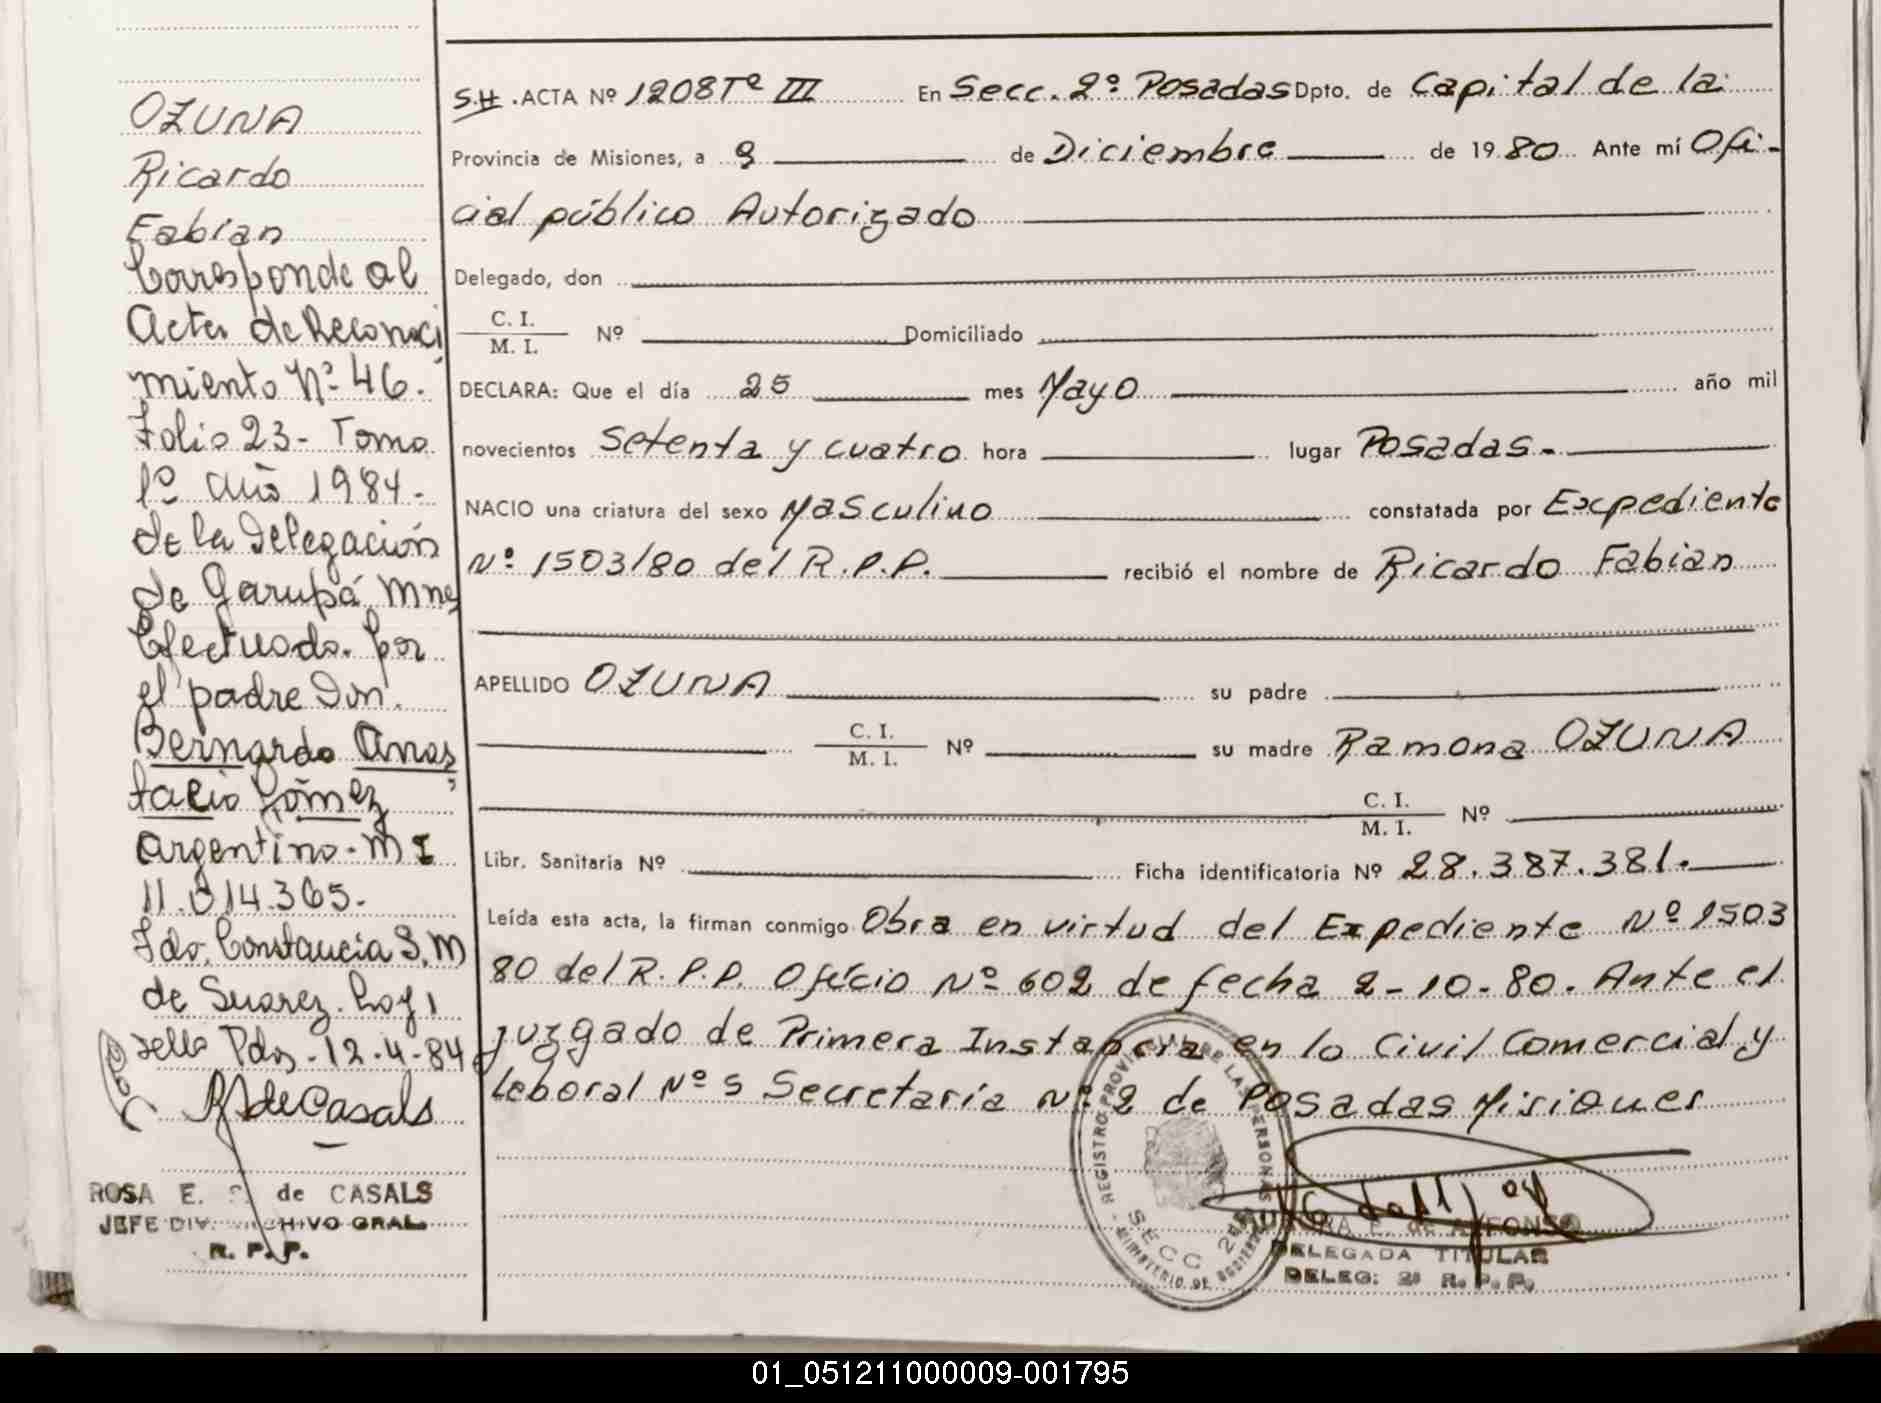 OZUNA
Ricardo
Fabian
Corresponde al
Acta de Reconoci
miento Nº 46.
Folio 23- Tomo
1º año 1984.
de la Delegación
de Garupá Mnes
Efectuado. por
el padre Don.
Bernardo Anas
tacio Gómez
Argentino - M I
11.014.365.
Fdo. Constancia S. M
de Suarez. Hay 1
sello Pdas - 12-4-84
R de Casals
ROSA E. S. de CASALS
JEFE DIV. ARCHIVO GRAL.
R. P. P.
S.H. ACTA Nº 1208 Tº III En Secc. 2º Posadas Dpto. de Capital de la
Provincia de Misiones, a 9 de Diciembre de 1980 Ante mí Ofi-
cial público Autorizado
Delegado, don
C. I.
M. I. Nº Domiciliado
DECLARA: Que el día 25 mes Mayo año mil
novecientos Setenta y cuatro hora lugar Posadas.-
NACIO una criatura del sexo Masculino constatada por Expediente
Nº 1503/80 del R.P.P. recibió el nombre de Ricardo Fabian
APELLIDO OZUNA su padre
C. I.
M. I. Nº su madre Ramona OZUNA
C. I.
M. I. Nº
Libr. Sanitaria Nº Ficha identificatoria Nº 28.387.381.
Leída esta acta, la firman conmigo Obra en virtud del Expediente Nº 1503
80 del R.P.P. Oficio Nº 602 de fecha 2-10-80. Ante el
juzgado de Primera Instancia en lo Civil Comercial y
laboral Nº 5 Secretaría Nº 2 de Posadas Misiones
REGISTRO PROVINCIAL DE LAS PERSONAS
SECC 2da
MINISTERIO DE GOBIERNO
E. de ALFONSO
DELEGADA TITULAR
DELEG: 2ª R. P. P.
01_051211000009-001795